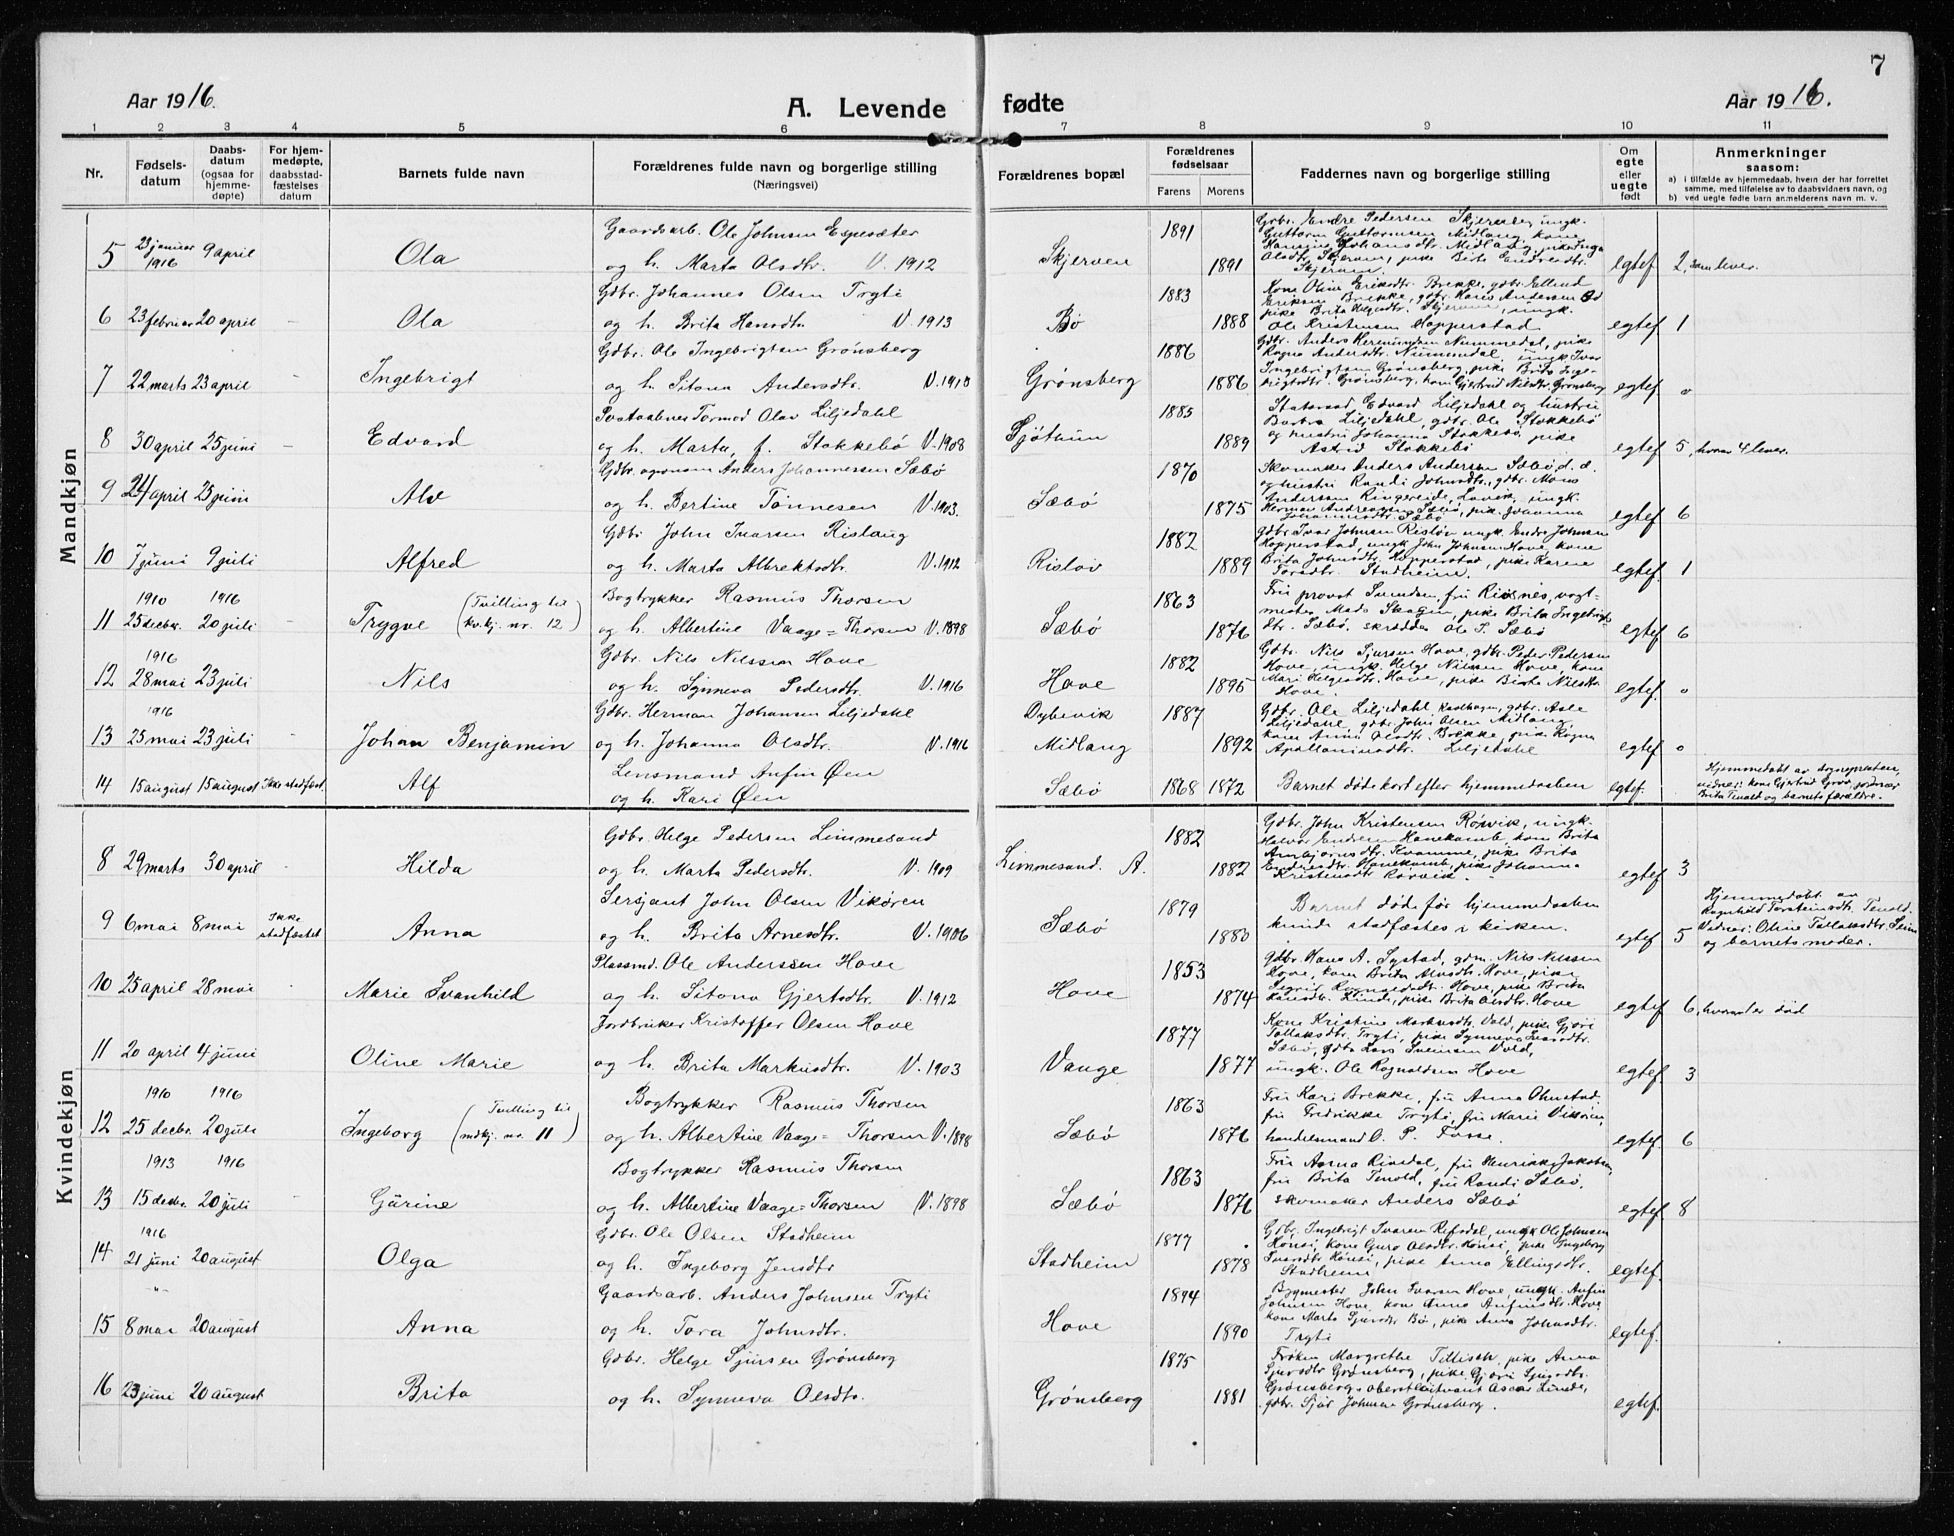 7
Aar 1916.
A. Levende fødte
Aar 1916.
1 2 3 4 5 6 7 8 9 10 11
Nr.
Fødsels-
datum
Daabs-
datum
(ogsaa for
hjemme-
døpte)
For hjem-
medøpte,
daabsstad-
fæstelses
datum
Barnets fulde navn
Forældrenes fulde navn og borgerlige stilling
(Næringsvei)
Forældrenes bopæl
Forældrenes
fødselsaar
Farens Morens
Faddernes navn og borgerlige stilling
Om
egte
eller
uegte
født
Anmerkninger
saasom:
a) i tilfælde av hjemmedaab, hvem der har forrettet
samme, med tilføielse av to daabsvidners navn, og
b) ved uegte fødte barn anmelderens navn m. v.
Mandkjøn
5 23 januar 1916 9 april Ola
Gaardsarb. Ole Johnsen Espesæter
og h. Marta Olsdtr. V. 1912
Skjerven 1891 1891
Gdbr. Endre Pedersen Skjerven, ungk.
Guttorm Guttormsen Midlang, kone
Hansine Johansdtr. Midlang, pike Inga
Olsdtr. Skjerven, pike Brita Endresdtr.
Skjerven.
egtef 2, som lever.
6 23 februar 20 april - Ola
Gdbr. Johannes Olsen Trgti
og h. Brita Hansdtr. V. 1913
Bø 1883 1888
Kone Oline Eriksdtr. Brekke, gdbr. Ellend
Eriksen Brekke, gdbr. Hans Andersen
pike Brita Helgesdtr. Skjerven, ungk.
Ole Kristensen Hopperstad
egtef 1
7 22 marts 23 april - Ingebrigt
Gdbr. Ole Ingebrigtsen Grønsberg
og h. Sitona Andersdtr. V. 1913
Grønsberg 1886 1886
Gdbr. Anders Hermundsen Nummedal, pike
Ragna Andersdtr. Nummedal, ungk. Ivar
Ingebrigtsen Grønsberg, pike Brita Inge-
brigtsdtr. Grønsberg, kone Gjertrud Nilsdtr. Grønsberg
egtef 0
8 30 april 25 juni - Edvard
Tormod Olav Liljedahl
og h. Marta, f. Stokkebø V. 1908
Sjøthun 1885 1889
Statsraad Edvard Liljedahl og hustru
Liljedahl, gdbr. Ole Stokkebø
og hustru Johanna Stokkebø, pike
Astrid Stokkebø
egtef 5, hvorav 4 lever.
9 24 april 25 juni - Alv
Gdbr. Anders Johannessen Sæbø
og h. Bertine Tønnesen V. 1903.
Sæbø 1870 1875
Skomaker Anders Andersen Sæbø d. æ.
og hustru Randi Johnsdtr., gdbr. Mons
Andersen Ringereide, Lavik, ungk.
Herman Andreassen Sæbø, pike Johanna
Johannesdtr. Sæbø
egtef 6
10 7 juni 9 juli - Alfred
Gdbr. John Ivarsen Rislaug
og h. Marta Albrektsdtr. V. 1912
Risløv 1882 1889
Gdbr. Ivar Johnsen Risløv, ungk. Endre Johnsen
Hopperstad, ungk. John Johnsen Hove, kone
Brita Johnsdtr. Hopperstad, pike Karen
Torsdtr. Stadheim.
egtef 1
11 1910 25 decbr. 1916 20 juli - Trygve (Tvilling til
kv.kj. nr. 12)
Bogtrykker Rasmus Thorsen
og h. Albertine Vaage=Thorsen V. 1898
Sæbø 1863 1876
Fru provst Svendsen, fru Risnes, vogt-
mester Mads Skagen, pike Brita Ingebrigts-
dtr. Sæbø, skrædder Ole S. Sæbø
egtef 6
12 1916 28 mai 23 juli - Nils
Gdbr. Nils Nilssen Hove
og h. Synneva Pedersdtr. V. 1916
Hove 1882 1895
Gdbr. Nils Sjursen Hove, gdbr. Peder Pedersen
Hove, ungk. Helge Nilssen Hove, kone
Mari Helgesdtr. Hove, pike Brita Nilsdtr.
Hove.
egtef. 0
13 1916 25 mai 23 juli - Johan Benjamin
Gdbr. Herman Johansen Liljedahl
og h. Johanna Olsdtr. V. 1916
Dybevik
Midlang 1887 1892
Gdbr. Ole Liljedahl, gdbr. Asle
Liljedahl, gdbr. John Olsen Midlang,
kone Anna Olsdtr. Brekke, pike Ragna
Apolloniusdtr. Liljedahl
egtef 0
14 15 august 15 august Ikke stadfæst. Alf
Lensmand Anfin Øen
og h. Kari Øen
Sæbø 1868 1872 Barnet døde kort efter hjemmedaaben egtef.
Hjemmedøbt av sognepresten,
vidner: kone Gjertrud Grov, jordmor
Brita Tenold og barnets forældre.
Kvindekjøn
8 29 marts 30 april - Hilda
Gdbr. Helge Pedersen Limmesand
og h. Marta Pedersdtr. V. 1909
Limmesand. A. 1882 1882
Gdbr. John Kristensen Rørvik, ungk.
Halvor Endresen Hanekamb, kone Brita
Arnbjørnsdtr. Kvamme, pike Brita
Endresdtr. Hanekamb, pike Johanna
Kristensdtr. Rørvik.
egtef 3
9 6 mai 8 mai Ikke
stadfæstet Anna
Sersjant John Olsen Vikøren
og h. Brita Arnesdtr. V. 1906
Sæbø 1879 1880
Barnet døde før hjemmedaaben
kunde stadfæstes i kirken.
egtef 5
Hjemmedøbt av
Ragnhild Torsteinsdtr. Tenold.
Vidner: Oline Tollaksdtr. Seim
og barnets moder.
10 25 april 28 mai - Marie Svanhild
Plassmd. Ole Anderssen Hove
og h. Sitona Gjertsdtr. V. 1912
Hove 1853 1874
Gdbr. Hans A. Systad, gdm. Nils Nilssen
Hove, kone Brita Olsdtr. Hove, pike
Sigrid Hove, pike Brita
Hansdtr. Linde, pike Brita Olsdtr. Hove
egtef 6, hvorav 1 er død
11 20 april 4 juni Oline Marie
Jordbruker Kristoffer Olsen Hove
og h. Brita Markusdtr. V. 1903
Vange 1877 1877
Kone Kristine Markusdtr. Vold, pike Gjøri
Tollaksdtr. Trgti, pike Synneva Ivarsdtr.
Sæbø, gdbr. Lars Sveinsen Vold,
ungk. Ole Ragnaldsen Hove
egtef 3
12 1910 25 decbr. 1916 20 juli - Ingeborg (Tvilling til
mdkj. nr. 11)
Bogtrykker Rasmus Thorsen
og h. Albertine Vaage= Thorsen V. 1898
Sæbø 1863 1876
Fru Kari Brekke, fru Anna Ohnstad,
fru Fredrikke Trgti, fru Marie Vikøren,
handelsmand O. P. Fosse.
egtef 6
13 1913 15 decbr. 1916 20 juli - Gürine
Bogtrykker Rasmus Thorsen
og h. Albertine Vaage=Thorsen V. 1898
Sæbø 1863 1876
Fru Anna Rindal, fru Henrikke Jakobsen,
fru Brita Tenold, fru Randi Sæbø,
skomaker Anders Sæbø
egtef 8
14 1916 21 juni 20 august Olga
Gdbr. Ole Olsen Stadheim
og h. Ingeborg Jensdtr
Stadheim 1877 1878
Gdbr. Ingebrigt Ivarsen Refsdal, ungk. Ole Johnsen
Hønsi, kone Guro Olsdtr. Hønsi, pike Ingeborg
Ivarsdtr. Hønsi, pike Anna Ellingsdtr.
Stadheim
egtef.
15 " 8 mai 20 august Anna
Gaardsarb. Anders Johnsen Trgti
og h. Tora Johnsdtr.
Hove 1894 1890
Bygmester John Ivarsen Hove, ungk. Anfin
Johnsen Hove, kone Anna Anfinsdtr. Hove,
kone Marta Sjursdtr Bø, pike Anna Johnsdtr.
Trgti
egtef.
16 23 juni 20 august Brita
Gdbr. Helge Sjursen Grønsberg
og h. Synneva Olsdtr.
Grønsberg 1875 1881
Frøken Margrethe Tillisch, pike Anna
Sjursdtr Grønsberg, pike Gjøri Sjursdtr.
Grønsberg, oberstløitnant Oscar Linde,
gdbr. Sjur Johnsen Grønsberg.
egtef.